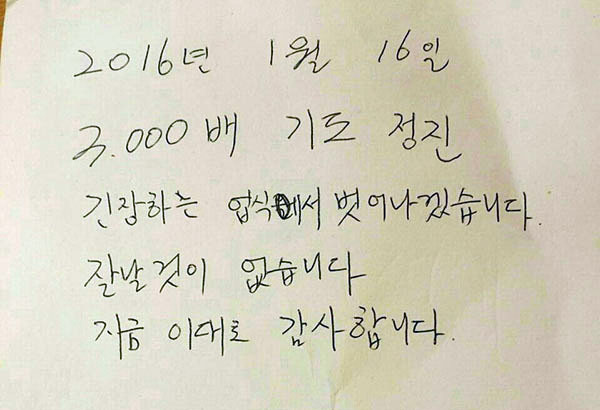 2016년 1월 16일
3.000배 기도 정진
긴장하는 업식에서 벗어나겠습니다.
잘날것이 없습니다
지금 이대로 감사합니다.